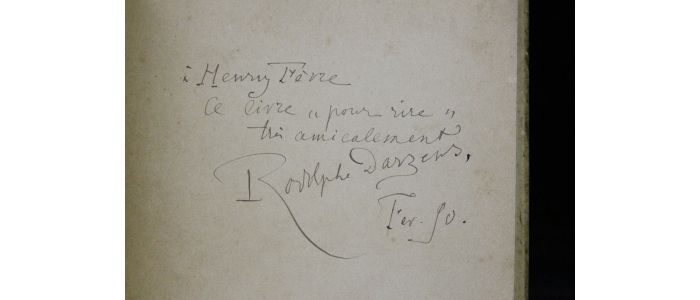 à Henry Fèvre
ce livre « pour rire »
très amicalement
Rodolphe Darzens,
Fev. 90.